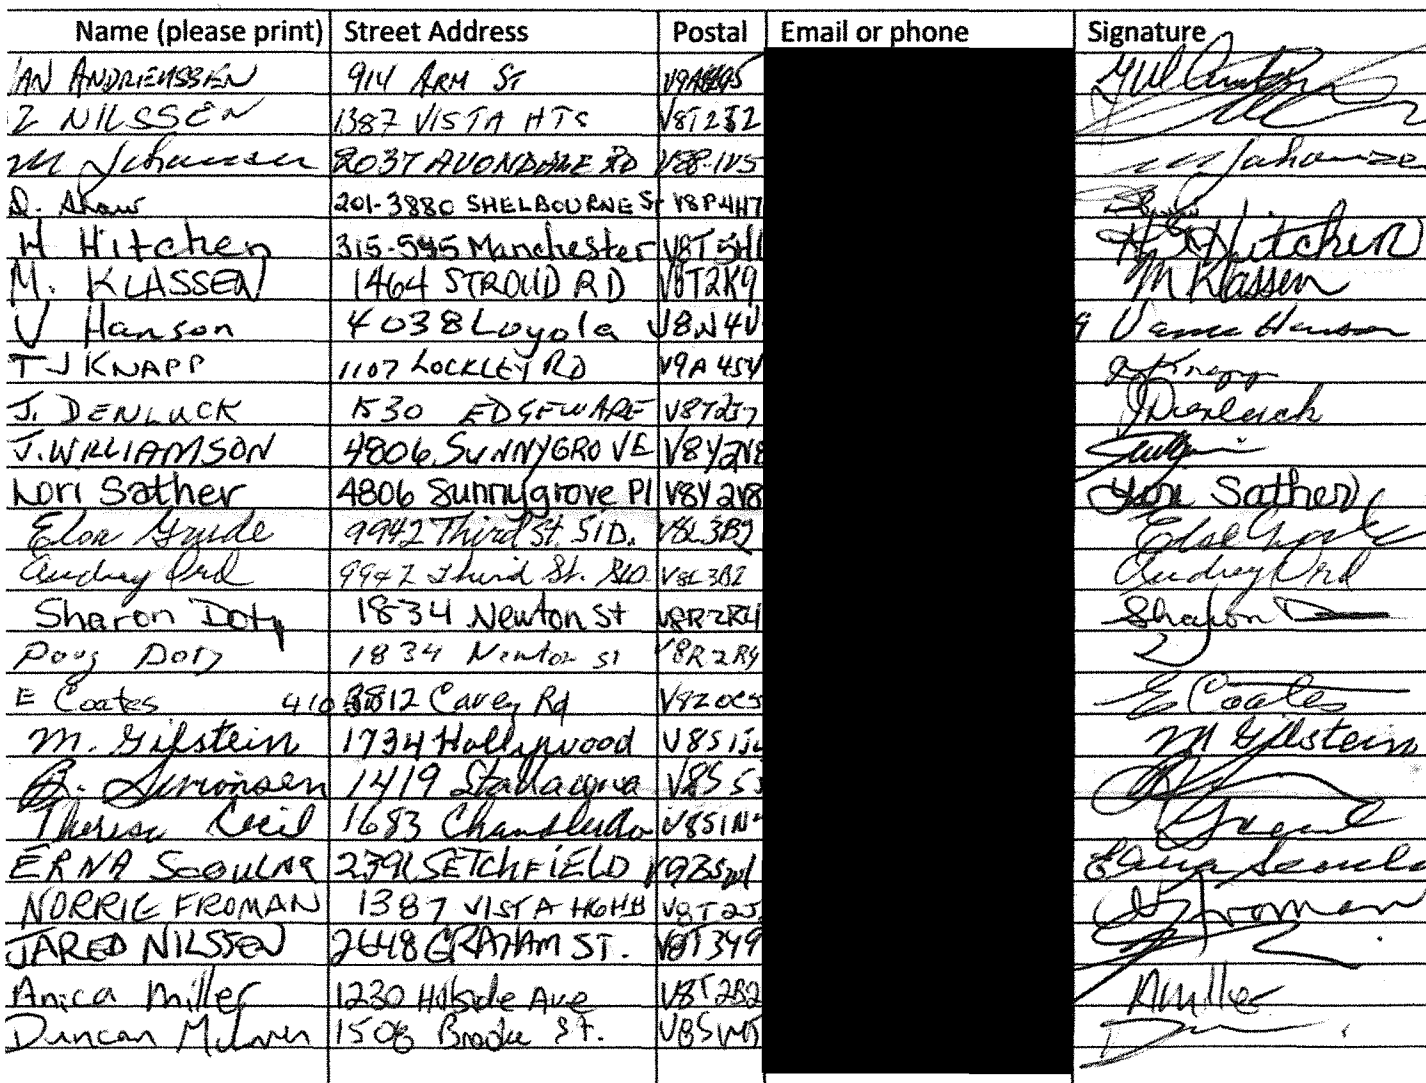 Name (please print) Street Address Postal Email or phone Signature
IAN ANDRIENSSEN 914 ARM St
Z NILSSEN 1387 VISTA HTS V8T2J2
M Johansen 2037 AVONDALE RD V88-1V5 M Johansen
D. Shaw 201-3880 SHELBOURNE St V8P4H7
H Hitchen 315-545 Manchester V8T5H1 H Hitchen
M. KLASSEN 1464 STROUD RD V8T2K9 M Klassen
V Hanson 4038 Loyola V8N4V Hanson
T J KNAPP 1107 LOCKLEY RD V9A 4S4 Knapp
J. DENLUCK 1530 EDGEWARE V8T2J7 J Denluck
J. WILLIAMSON 4806 SUNNYGROVE V8Y2V8
Lori Sather 4806 Sunnygrove Pl V8Y 2V8 Lori Sather
Grude 9942 Third St. SID. V8L3B2
Audrey Ord 9942 Third St. SID. V8L 3B2 Audrey Ord
Sharon Doty 1834 Newton St V8R2R4 Sharon
Doug Doty 1834 Newton St V8R2R4
E Coates 410 3812 Carey Rd V8Z0C5 E Coates
M. Gilstein 1734 Hollywood V8S1J M Gilstein
B. Simonsen 1419 V8S5J
Theresa Cecil 1683 V8S1N
ERNA SCOULAR 2391 SETCHFIELD V9B5 Erna
NORRIE FROMAN 1387 VISTA V8T2J Froman
JARED NILSSEN 2648 GRAHAM ST. V8T3Y9
Anica Miller 1230 Hillside Ave V8T2B2 AMiller
Duncan 1508 Brooke St.